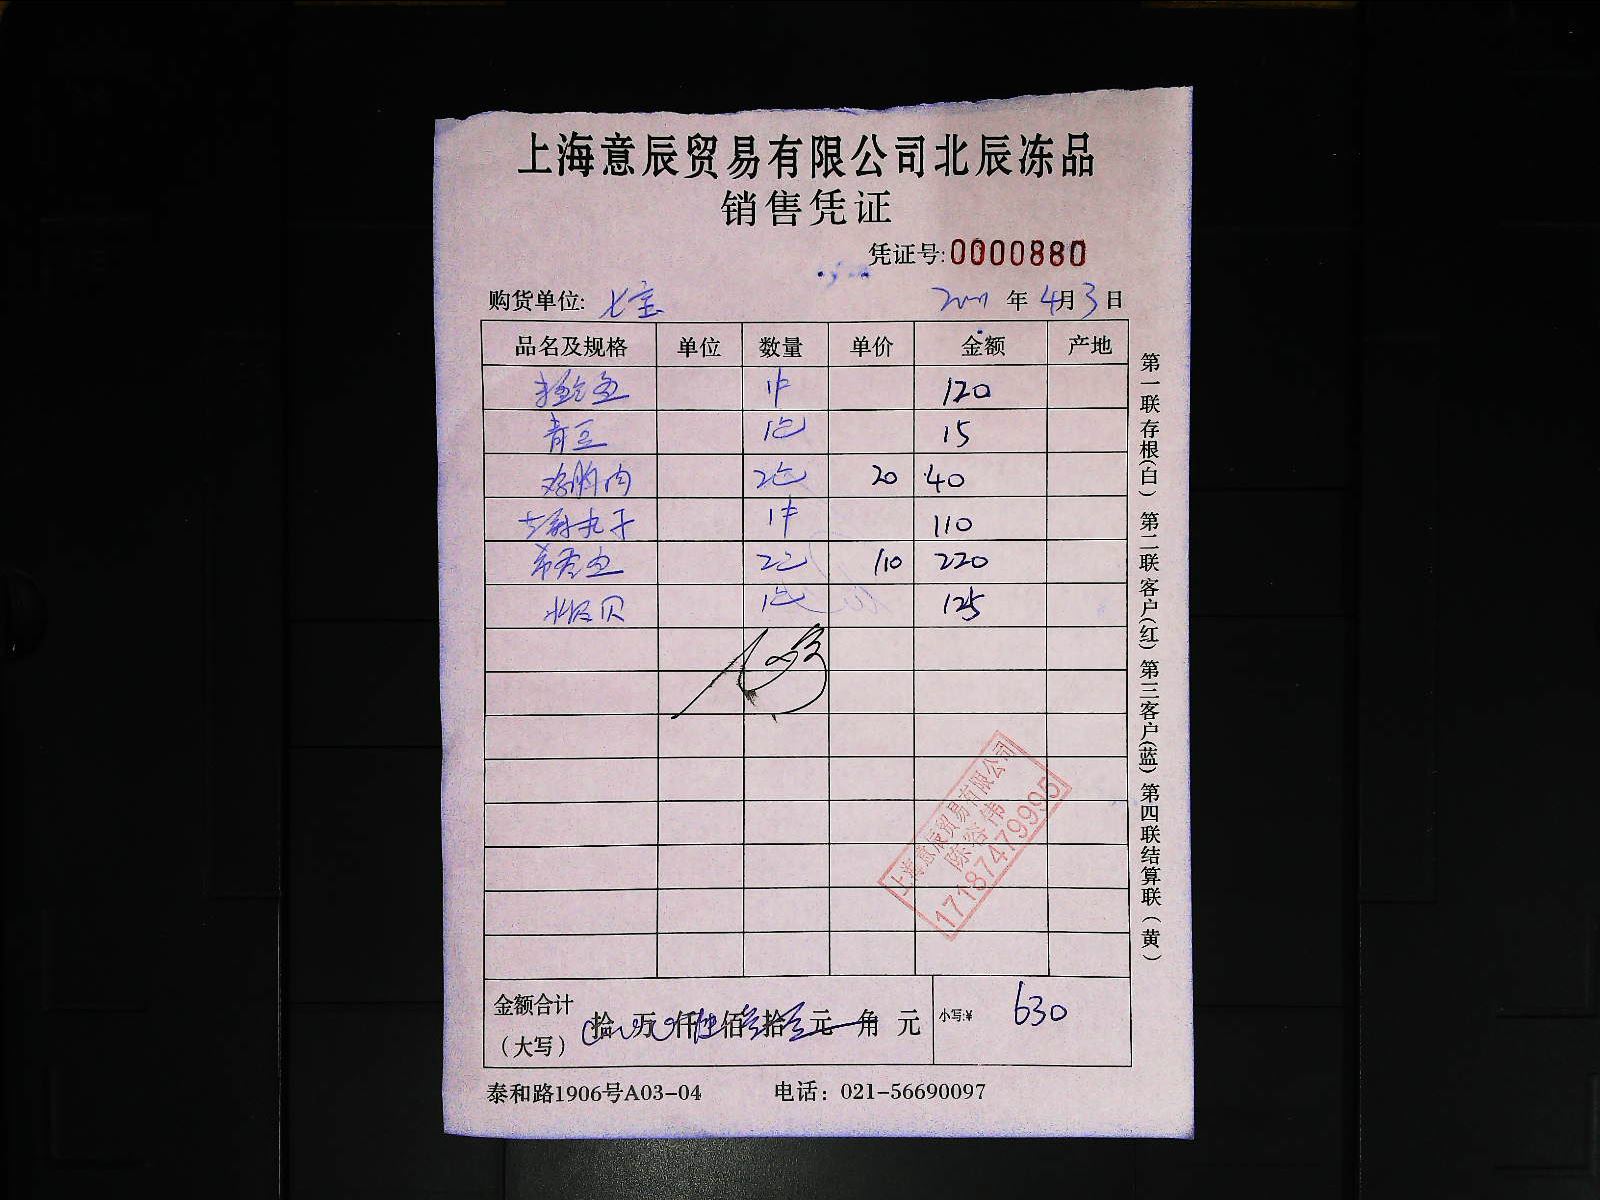 上海意辰贸易有限公司北辰冻品
销售凭证
凭证号:0000880
购货单位: 七宝 年 4月 3日
品名及规格 单位 数量 单价 金额 产地
1件 120
青豆 1包 15
鸡胸肉 2包 20 40
丸子 1件 110
2包 110 220
贝 1包 125
上海意辰贸易有限公司
陈容伟
17187479995
金额合计
(大写) 拾 万 仟 陆佰 叁拾 元 角 元 小写:¥ 630
泰和路1906号A03-04 电话: 021-56690097
第一联存根(白) 第二联客户(红) 第三客户(蓝) 第四联结算联(黄)